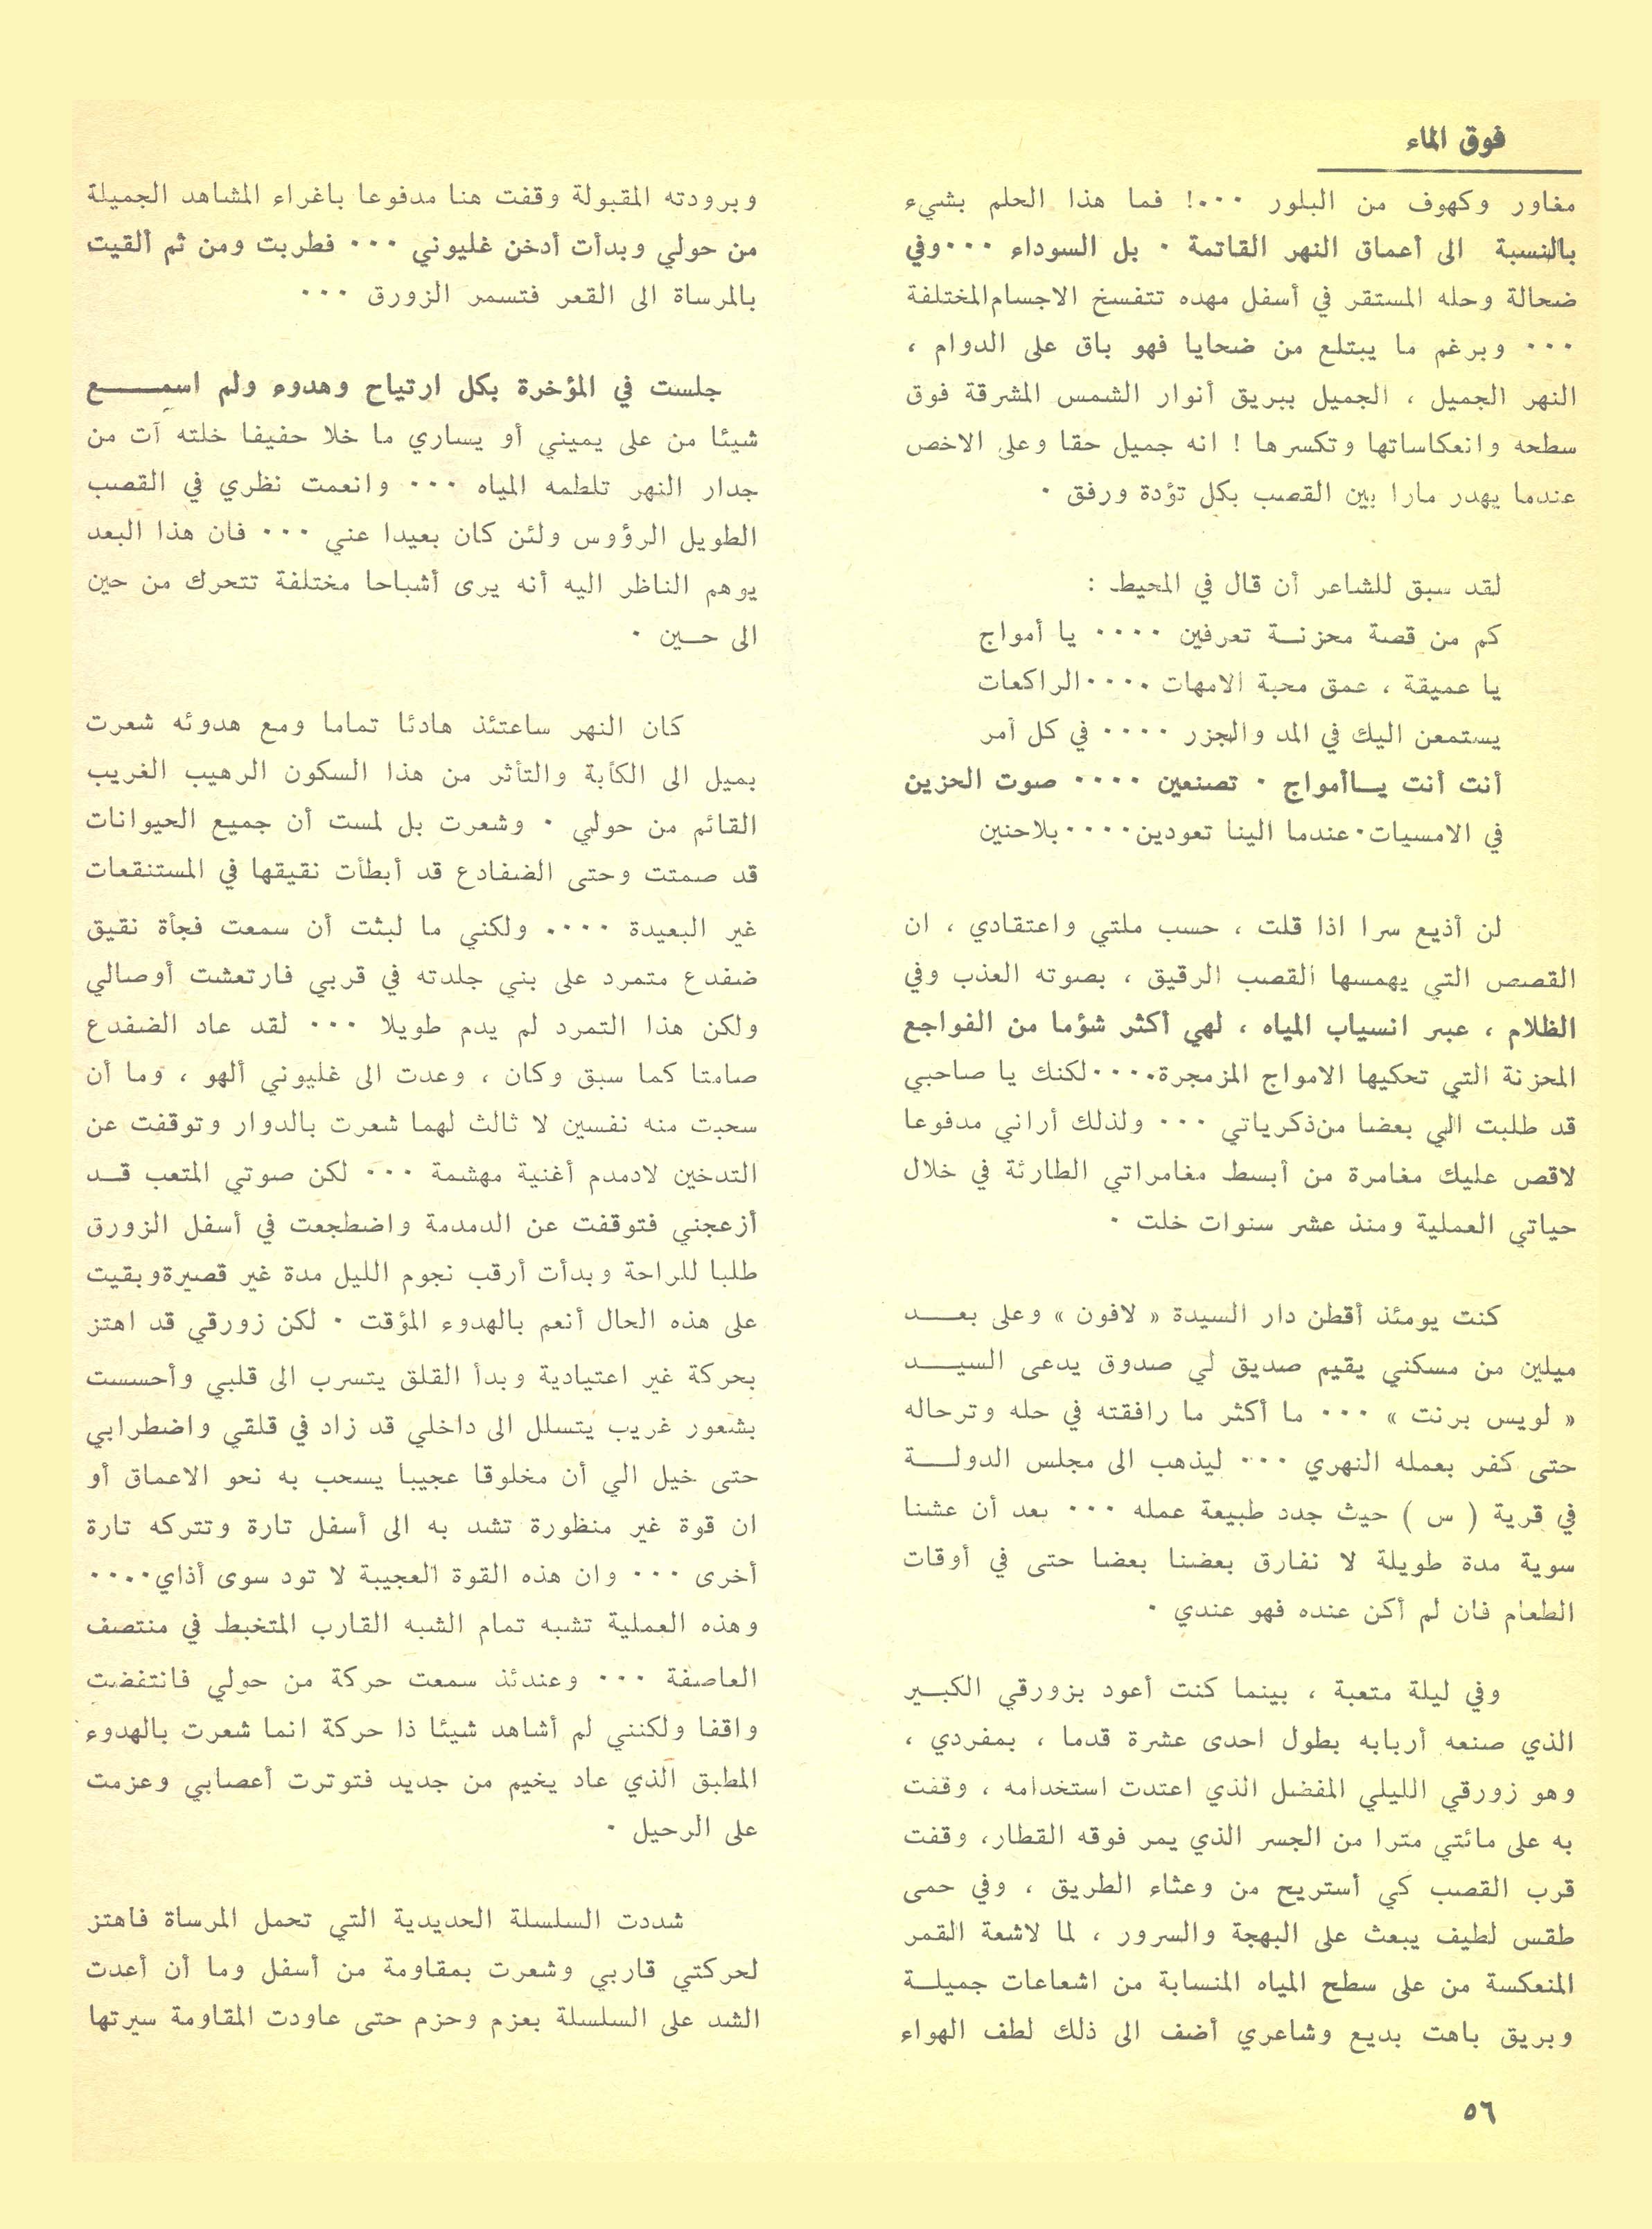 فوق الماء
مغاور وكهوف من البلور ...! فما هذا الحلم بشيء
بالنسبة الى أعماق النهر القاتمة . بل السوداء ...وفي
ضحالة وحله المستقر في أسفل مهده تتفسخ الاجسام المختلفة
... وبرغم ما يبتلع من ضحايا فهو باق على الدوام ،
النهر الجميل ، الجميل ببريق أنوار الشمس المشرقة فوق
سطحه وانعكاساتها وتكسرها ! انه جميل حقا وعلى الاخص
عندما يهدر مارا بين القصب بكل تؤدة ورفق .
لقد سبق للشاعر أن قال في المحيط :
كم من قصة محزنـة تعرفين .... يا أمواج
يا عميقة ، عمق محبة الامهات ....الراكعات
يستمعن اليك في المد والجزر .... في كل أمر
أنت أنت يــاأمواج . تصنعين .... صوت الحزين
في الامسيات.عندما الينا تعودين....بلاحنين
لن أذيع سرا اذا قلت ، حسب ملتي واعتقادي ، ان
القصص التي يهمسها القصب الرقيق ، بصوته العذب وفي
الظلام ، عبر انسياب المياه ، لهي أكثر شؤما من الفواجع
المحزنة التي تحكيها الامواج المزمجرة....لكنك يا صاحبي
قد طلبت الي بعضا من ذكرياتي ... ولذلك أراني مدفوعا
لاقص عليك مغامرة من أبسط مغامراتي الطارئة في خلال
حياتي العملية ومنذ عشر سنوات خلت .
كنت يومئذ أقطن دار السيدة « لافون » وعلى بعــد
ميلين من مسكني يقيم صديق لي صدوق يدعى السيــد
« لويس برنت » ... ما أكثر ما رافقته في حله وترحاله
حتى كفر بعمله النهري ... ليذهب الى مجلس الدولــة
في قرية ( س ) حيث جدد طبيعة عمله ... بعد أن عشنا
سوية مدة طويلة لا نفارق بعضنا بعضا حتى في أوقات
الطعام فان لم أكن عنده فهو عندي .
وفي ليلة متعبة ، بينما كنت أعود بزورقي الكبـير
الذي صنعه أربابه بطول احدى عشرة قدما ، بمفردي ،
وهو زورقي الليلي المفضل الذي اعتدت استخدامه ، وقفت
به على مائتي مترا من الجسر الذي يمر فوقه القطار، وقفت
قرب القصب كي أستريح من وعثاء الطريق ، وفي حمى
طقس لطيف يبعث على البهجة والسرور ، لما لاشعة القمر
المنعكسة من على سطح المياه المنسابة من اشعاعات جميلـة
وبريق باهت بديع وشاعري أضف الى ذلك لطف الهواء
وبرودته المقبولة وقفت هنا مدفوعا باغراء المشاهد الجميلة
من حولي وبدأت أدخن غليوني ... فطربت ومن ثم ألقيت
بالمرساة الى القعر فتسمر الزورق ...
جلست في المؤخرة بكل ارتياح وهدوء ولم اسمــــع
شيئا من على يميني أو يساري ما خلا حفيفا خلته آت من
جدار النهر تلطمه المياه ... وانعمت نظري في القصب
الطويل الرؤوس ولئن كان بعيدا عني ... فان هذا البعد
يوهم الناظر اليه أنه يرى أشباحا مختلفة تتحرك من حين
الى حــين .
كان النهر ساعتئذ هادئا تماما ومع هدوئه شعرت
بميل الى الكآبة والتأثر من هذا السكون الرهيب الغريب
القائم من حولي . وشعرت بل لمست أن جميع الحيوانات
قد صمتت وحتى الضفادع قد أبطأت نقيقها في المستنقعات
غير البعيدة .... ولكني ما لبثت أن سمعت فجأة نقيق
ضفدع متمرد على بني جلدته في قربي فارتعشت أوصالي
ولكن هذا التمرد لم يدم طويلا ... لقد عاد الضفدع
صامتا كما سبق وكان ، وعدت الى غليوني ألهو ، وما أن
سحبت منه نفسين لا ثالث لهما شعرت بالدوار وتوقفت عن
التدخين لادمدم أغنية مهشمة ... لكن صوتي المتعب قــد
أزعجني فتوقفت عن الدمدمة واضطجعت في أسفل الزورق
طلبا للراحة وبدأت أرقب نجوم الليل مدة غير قصيرةوبقيت
على هذه الحال أنعم بالهدوء المؤقت . لكن زورقي قد اهتز
بحركة غير اعتيادية وبدأ القلق يتسرب الى قلبي وأحسست
بشعور غريب يتسلل الى داخلي قد زاد في قلقي واضطرابي
حتى خيل الي أن مخلوقا عجيبا يسحب به نحو الاعماق أو
ان قوة غير منظورة تشد به الى أسفل تارة وتتركه تارة
أخرى ... وان هذه القوة العجيبة لا تود سوى أذاي....
وهذه العملية تشبه تمام الشبه القارب المتخبط في منتصف
العاصفة ... وعندئذ سمعت حركة من حولي فانتفضت
واقفا ولكنني لم أشاهد شيئا ذا حركة انما شعرت بالهدوء
المطبق الذي عاد يخيم من جديد فتوترت أعصابي وعزمت
على الرحيل .
شددت السلسلة الحديدية التي تحمل المرساة فاهتز
لحركتي قاربي وشعرت بمقاومة من أسفل وما أن أعدت
الشد على السلسلة بعزم وحزم حتى عاودت المقاومة سيرتها
٥٦